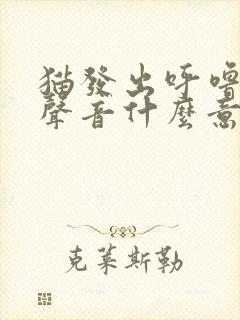 貓發出呼嚕
聲音什麼意
克萊斯勒